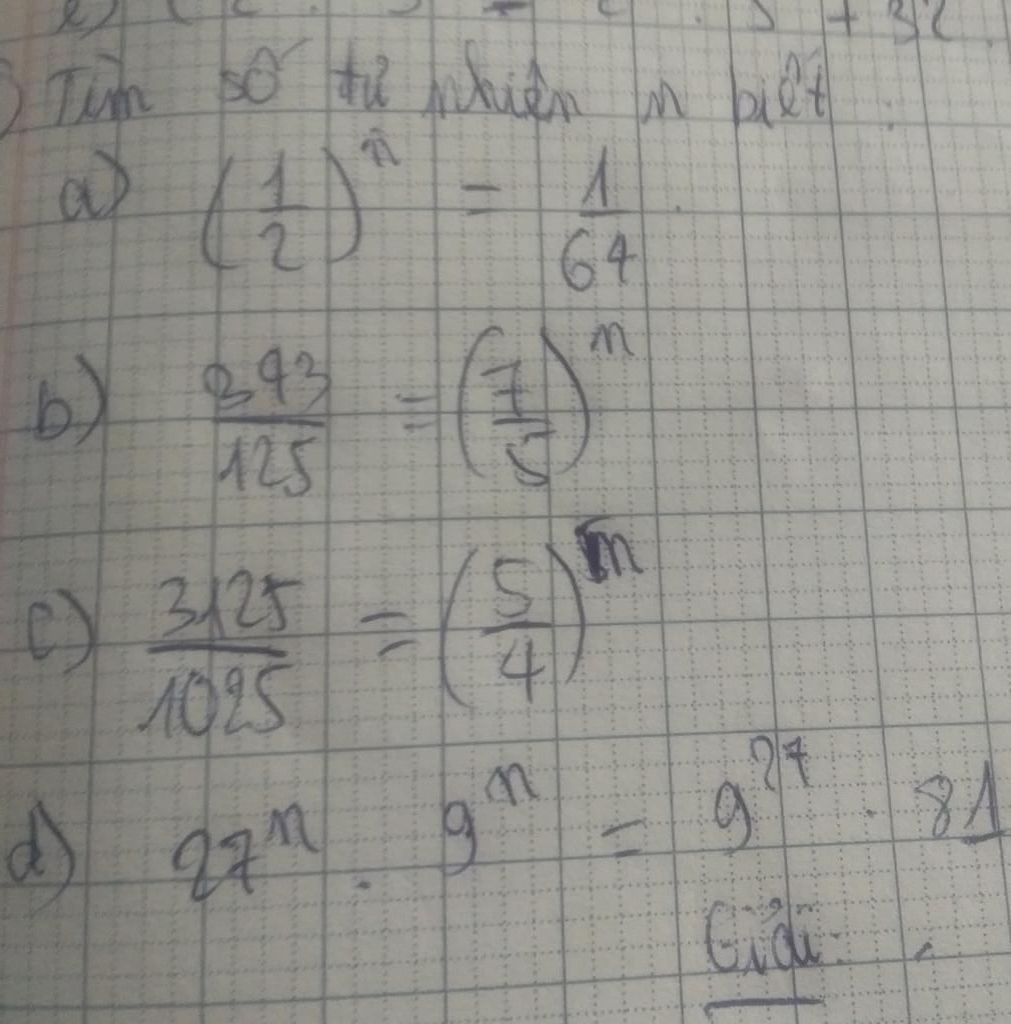 Tìm số tự nhiên n biết:
a) (1/2)^n = 1/64
b) 343/125 = (7/5)^n
c) 3125/1025 = (5/4)^n
d) 27^n . 9^n = 9^27 . 81
Giải: